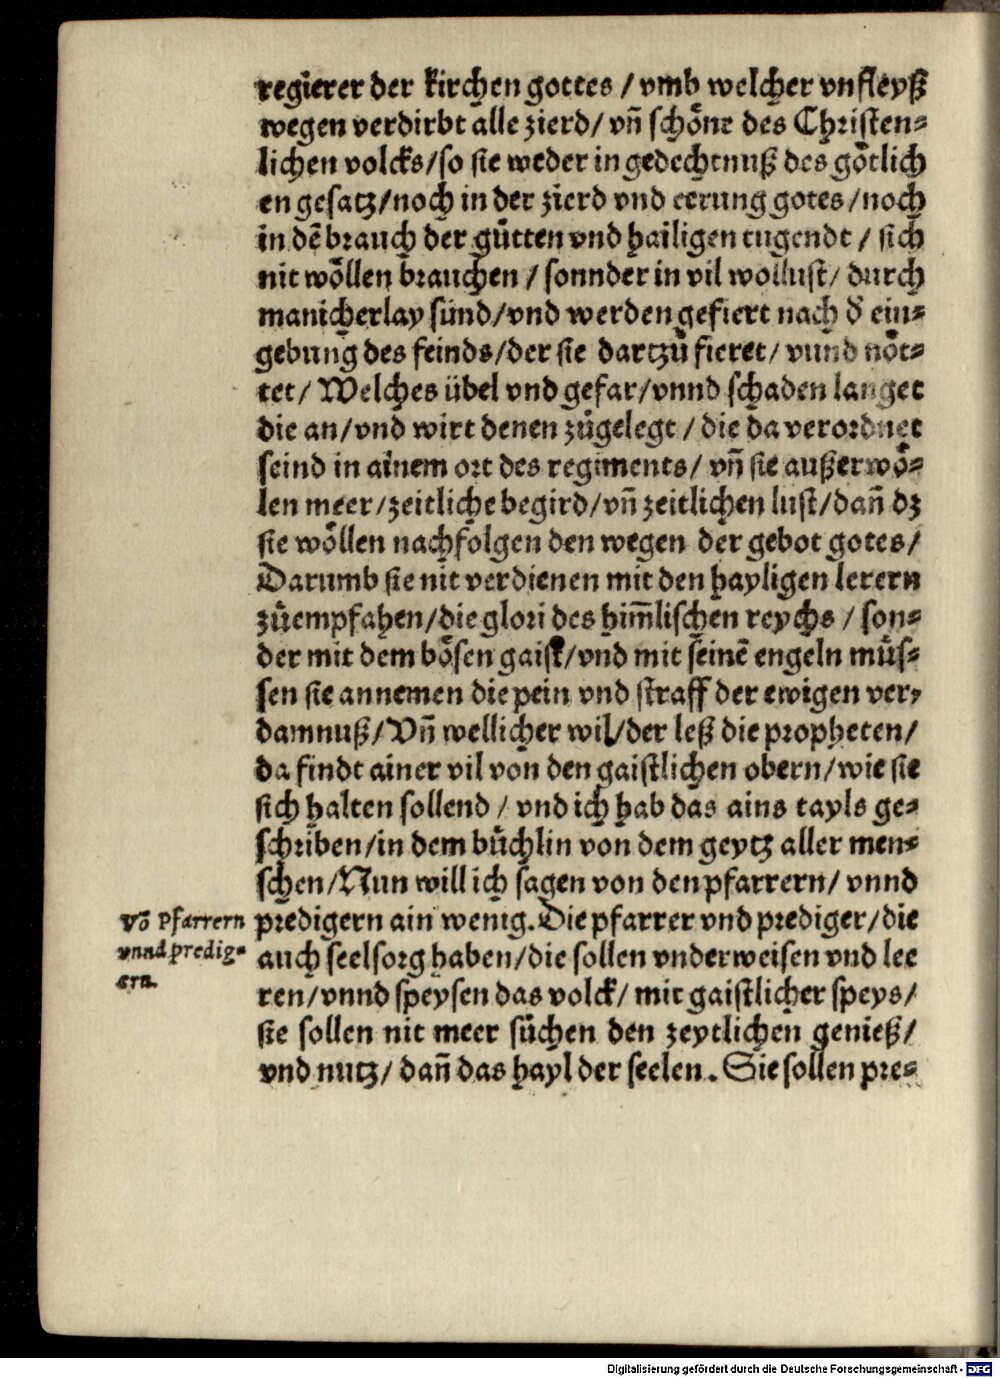 regierer der kirchen gottes / vmb welcher vnfleyß
wegen verdirbt alle zierd / vn̄ schoͤne des Christen⸗
lichen volcks / so sie weder in gedechtnuß des goͤtlich
en gesatz / noch in der zierd vnd eerung gotes / noch
in dē brauch der guͤtten vnd hailigen tugendt / sich
nit woͤllen brauchen / sonnder in vil wollust / durch
manicherlay sünd / vnd werden gefiert nach d̕ ein⸗
gebung des feinds / der sie dartzuͦ fieret / vnnd noͤt⸗
tet / Welches übel vnd gefar / vnnd schaden langet
die an / vnd wirt denen zuͦgelegt / die da verordnet
seind in ainem ort des regiments / vn̄ sie außerwoͤ⸗
len meer / zeitliche begird / vn̄ zeitlichen lust / dan̄ dz
sie woͤllen nachfolgen den wegen der gebot gotes /
Darumb sie nit verdienen mit den hayligen lerern
zuͦempfahen / die glori des him̄lischen reychs / son⸗
der mit dem boͤsen gaist / vnd mit seinē engeln muͤs⸗
sen sie annemen die pein vnd straff der ewigen ver⸗
damnuß / Vn̄ wellicher wil / der leß die propheten /
da findt ainer vil von den gaistlichen obern / wie sie
sich halten sollend / vnd ich hab das ains tayls ge⸗
schriben / in dem buͤchlin von dem geytz aller men⸗
schen / Nun will ich sagen von den pfarrern / vnnd
Vō Pfarrern
vnnd predig⸗
ern.
predigern ain wenig. Die pfarrer vnd prediger / die
auch seelsorg haben / die sollen vnderweisen vnd lee
ren / vnnd speysen das volck / mit gaistlicher speys /
sie sollen nit meer suͦchen den zeytlichen genieß /
vnd nutz / dan̄ das hayl der seelen. Sie sollen pre⸗
Digitalisierung gefördert durch die Deutsche Forschungsgemeinschaft - DFG